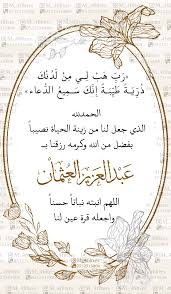 «رَبِّ هَبْ لِي مِنْ لَدُنْكَ
ذُرِّيَةً طَيِّبَةً إِنَّكَ سَمِيعُ الدُّعَاء»
الحمدلله
الذي جعل لنا من زينة الحياة نصيباً
بفضل من الله وكرمه رزقنا بـ
عبدالعزيز العثمان
اللهم انبته نباتاً حسناً
واجعله قرة عين لنا